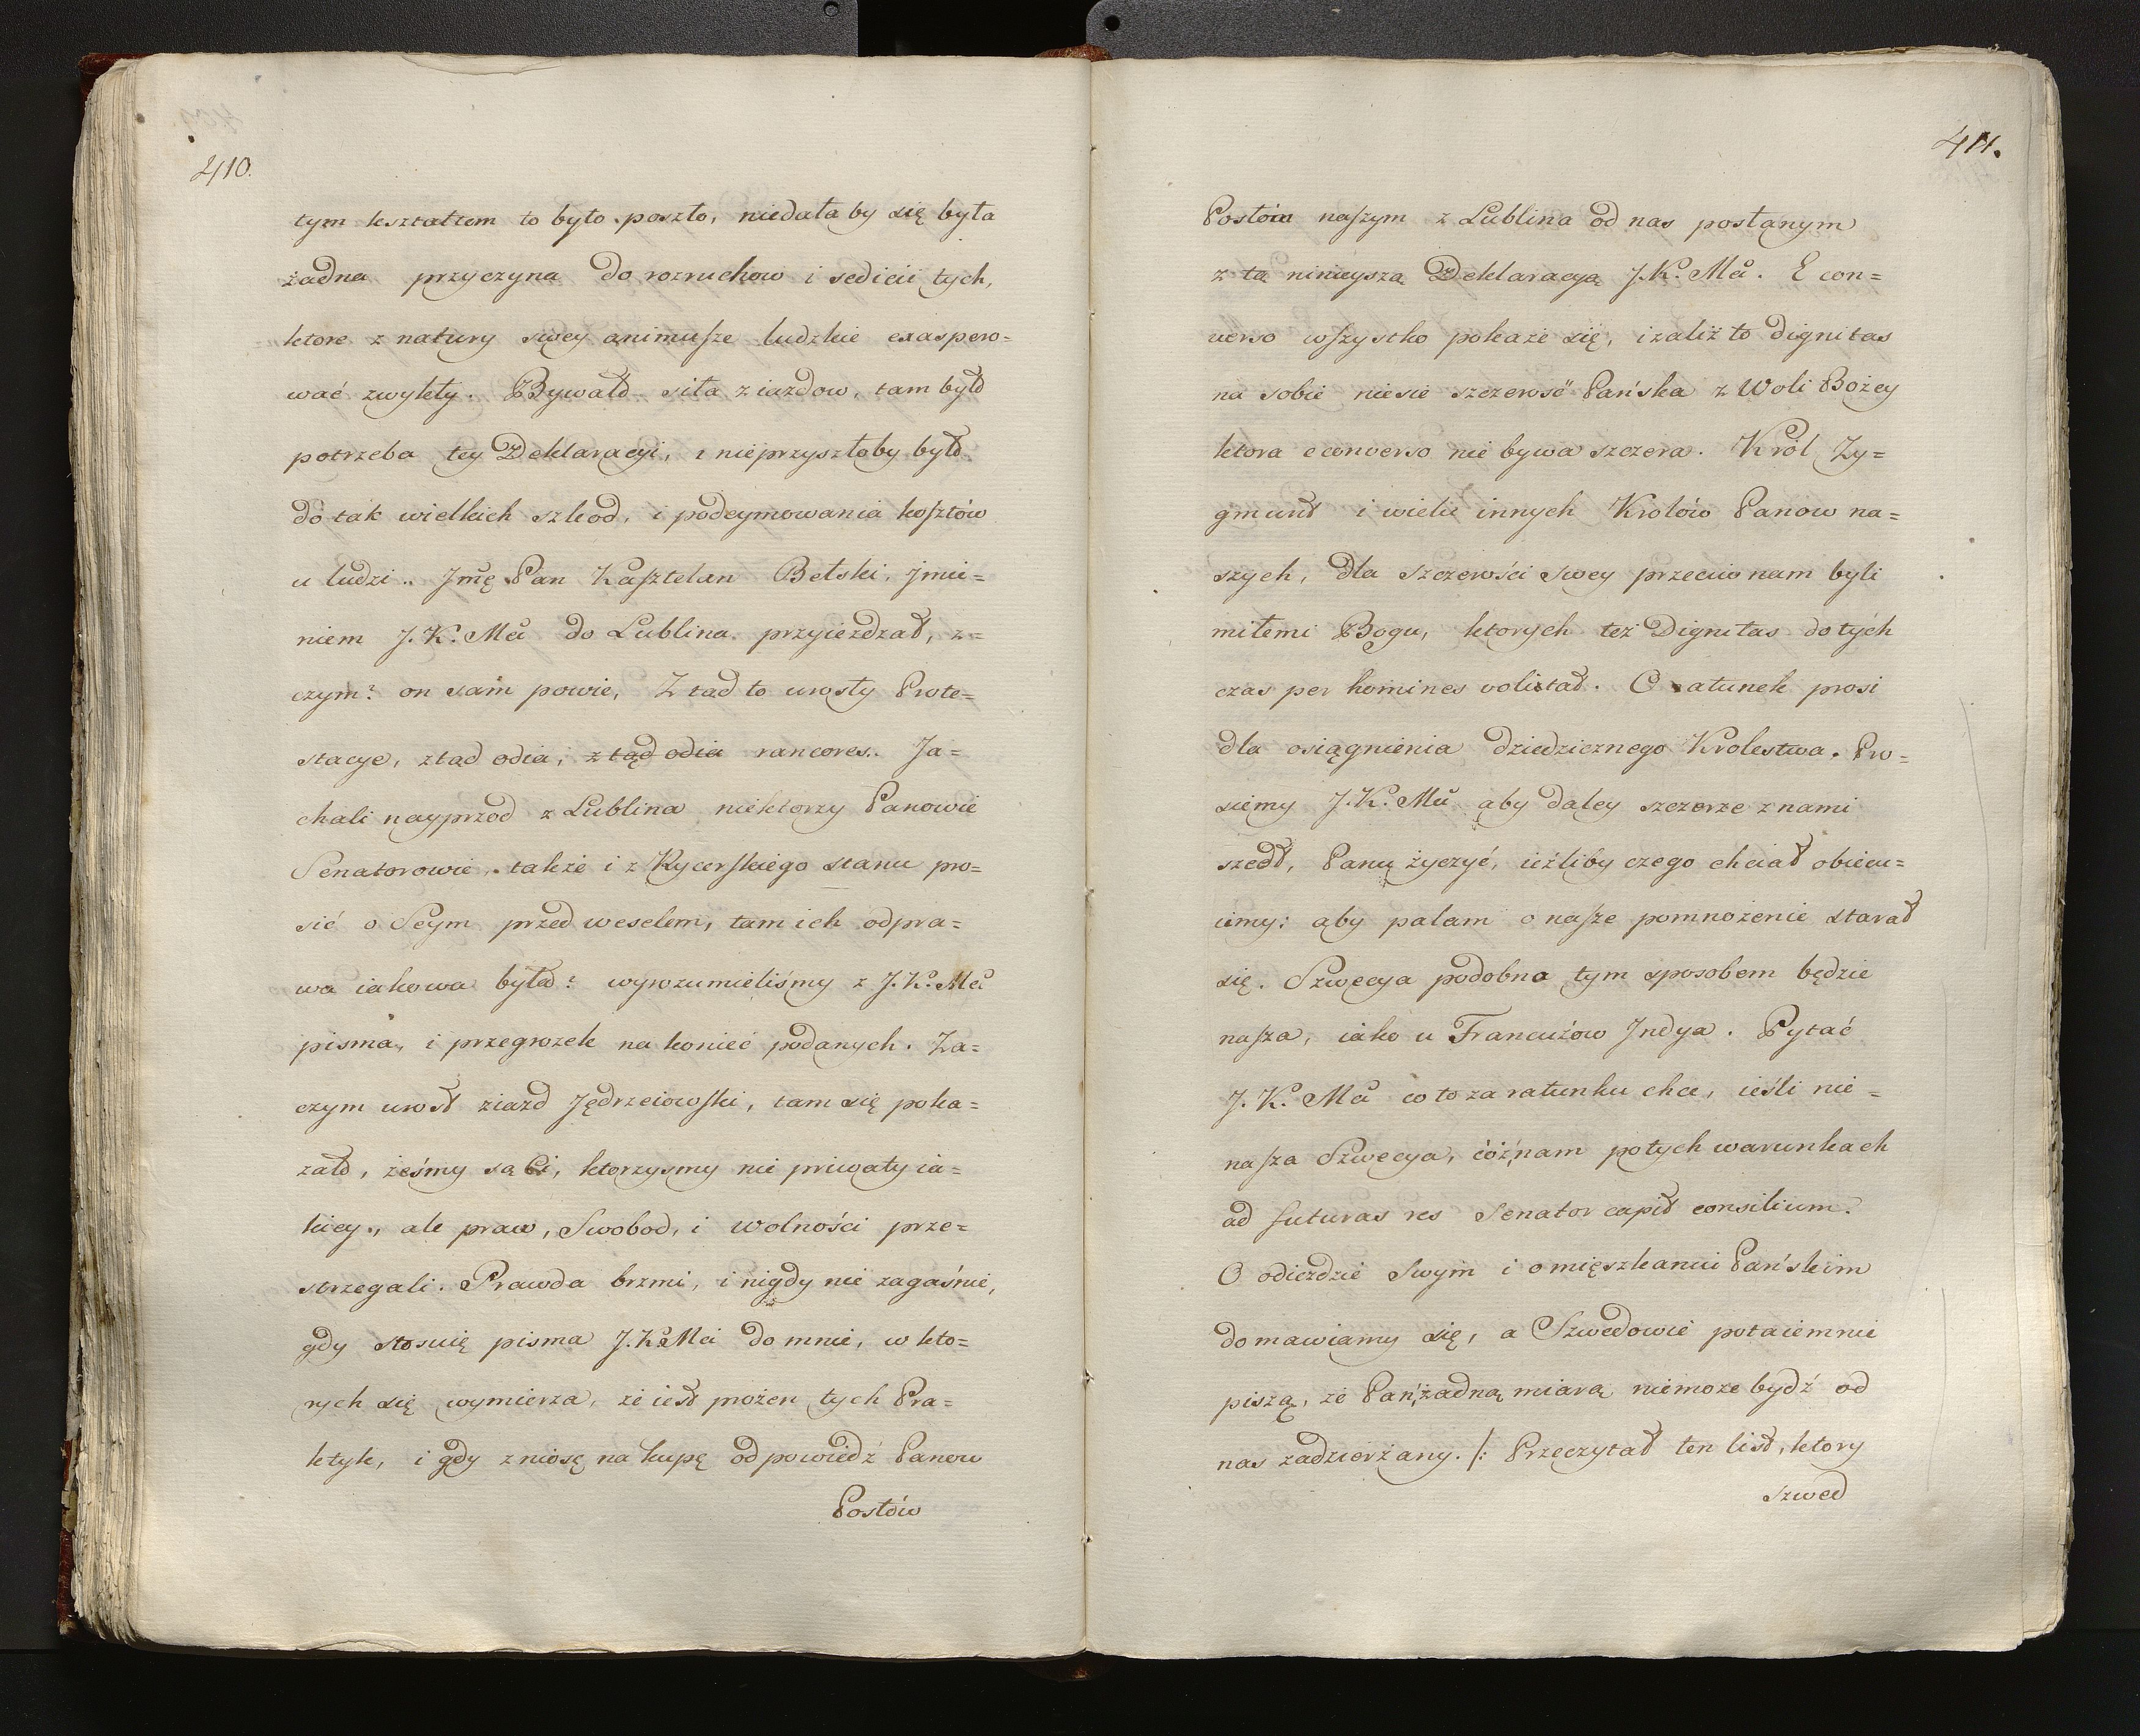 410.
tym kształtem to było poszło, niedała by się była
żadna przyczyna do rozruchow i sedicii tych,
ktore z natury swey animusze ludzkie exaspero=
wać zwykły. Bywało siła ziazdow, tam było
potrzeba tey Deklaracyi, i nieprzyszłoby było
do tak wielkich szkod, i podeymowania kosztów
u ludzi. Jmę Pan Kasztelan Bełski, jmie=
niem J. K. Mci do Lublina przyieżdzał, z=
czym? on sam powie, Z tad to urosły Prote=
stacye, ztad odia, ztąd odia rancores. Ja=
chali nayprzod z Lublina niektorzy Panowie
Senatorowie, także i z Rycerskiego stanu pro=
sić o Seym przed weselem, tam ich odpra=
wa iakowa była? wyrozumieliśmy z J. K. Mci
pisma, i przegrozek na konieć podanych. Za=
czym urosł ziazd Jędrzeiowski, tam się poka=
zało, żeśmy są Ci, ktorzysmy nie priwaty ia=
kiey, ale praw, Swobod, i wolności prze=
strzegali. Prawda brzmi, i nigdy nie zagaśnie,
gdy stosuię pisma J. K. Mci do mnie, w kto=
rych się wymierza, że iest prożen tych Pra=
ktyk, i gdy zniosę na kupę odpowiedź Panow
Posłów
411.
Posłóm naszym z Lublina od nas posłanym
z tą ninieyszą Deklaracyą J. K. Mci. E con=
verso wszystko pokaże się, izaliż to dignitas
na sobie niesie szczerość Pańska z Woli Bożey
ktora e converso nie bywa szczera. Król Zy=
gmunt i wielu innych Krolów Panow na=
szych, dla szczerości swey przeciw nam byli
miłemi Bogu, ktorych też Dignitas do tych
czas per homines volitat. O ratunek prosi
dla osiągnienia dziedzicznego Krolestwa. Pro=
siemy J. K. Mci aby daley szczerze z nami
szedł, Panu życzyć, ieźliby czego chciał obiecu=
iemy: aby palam o nasze pomnożenie starał
się. Szwecya podobno tym sposobem będzie
nasza, iako u Francuzow Jndya. Pytać
J. K. Mci co to za ratunku chce, ieśli nie=
nasza Szwecya, cóż nam po tych warunkach
ad futuras res Senator capit consilium.
O odieździe Swym i o mięszkaniu Pańskim
domawiamy się, a Szwedowie potaiemnie
piszą, że Pan żadną miarą niemoże bydź od
nas zadzierżany. /: Przeczytał ten list, ktory
Szwed